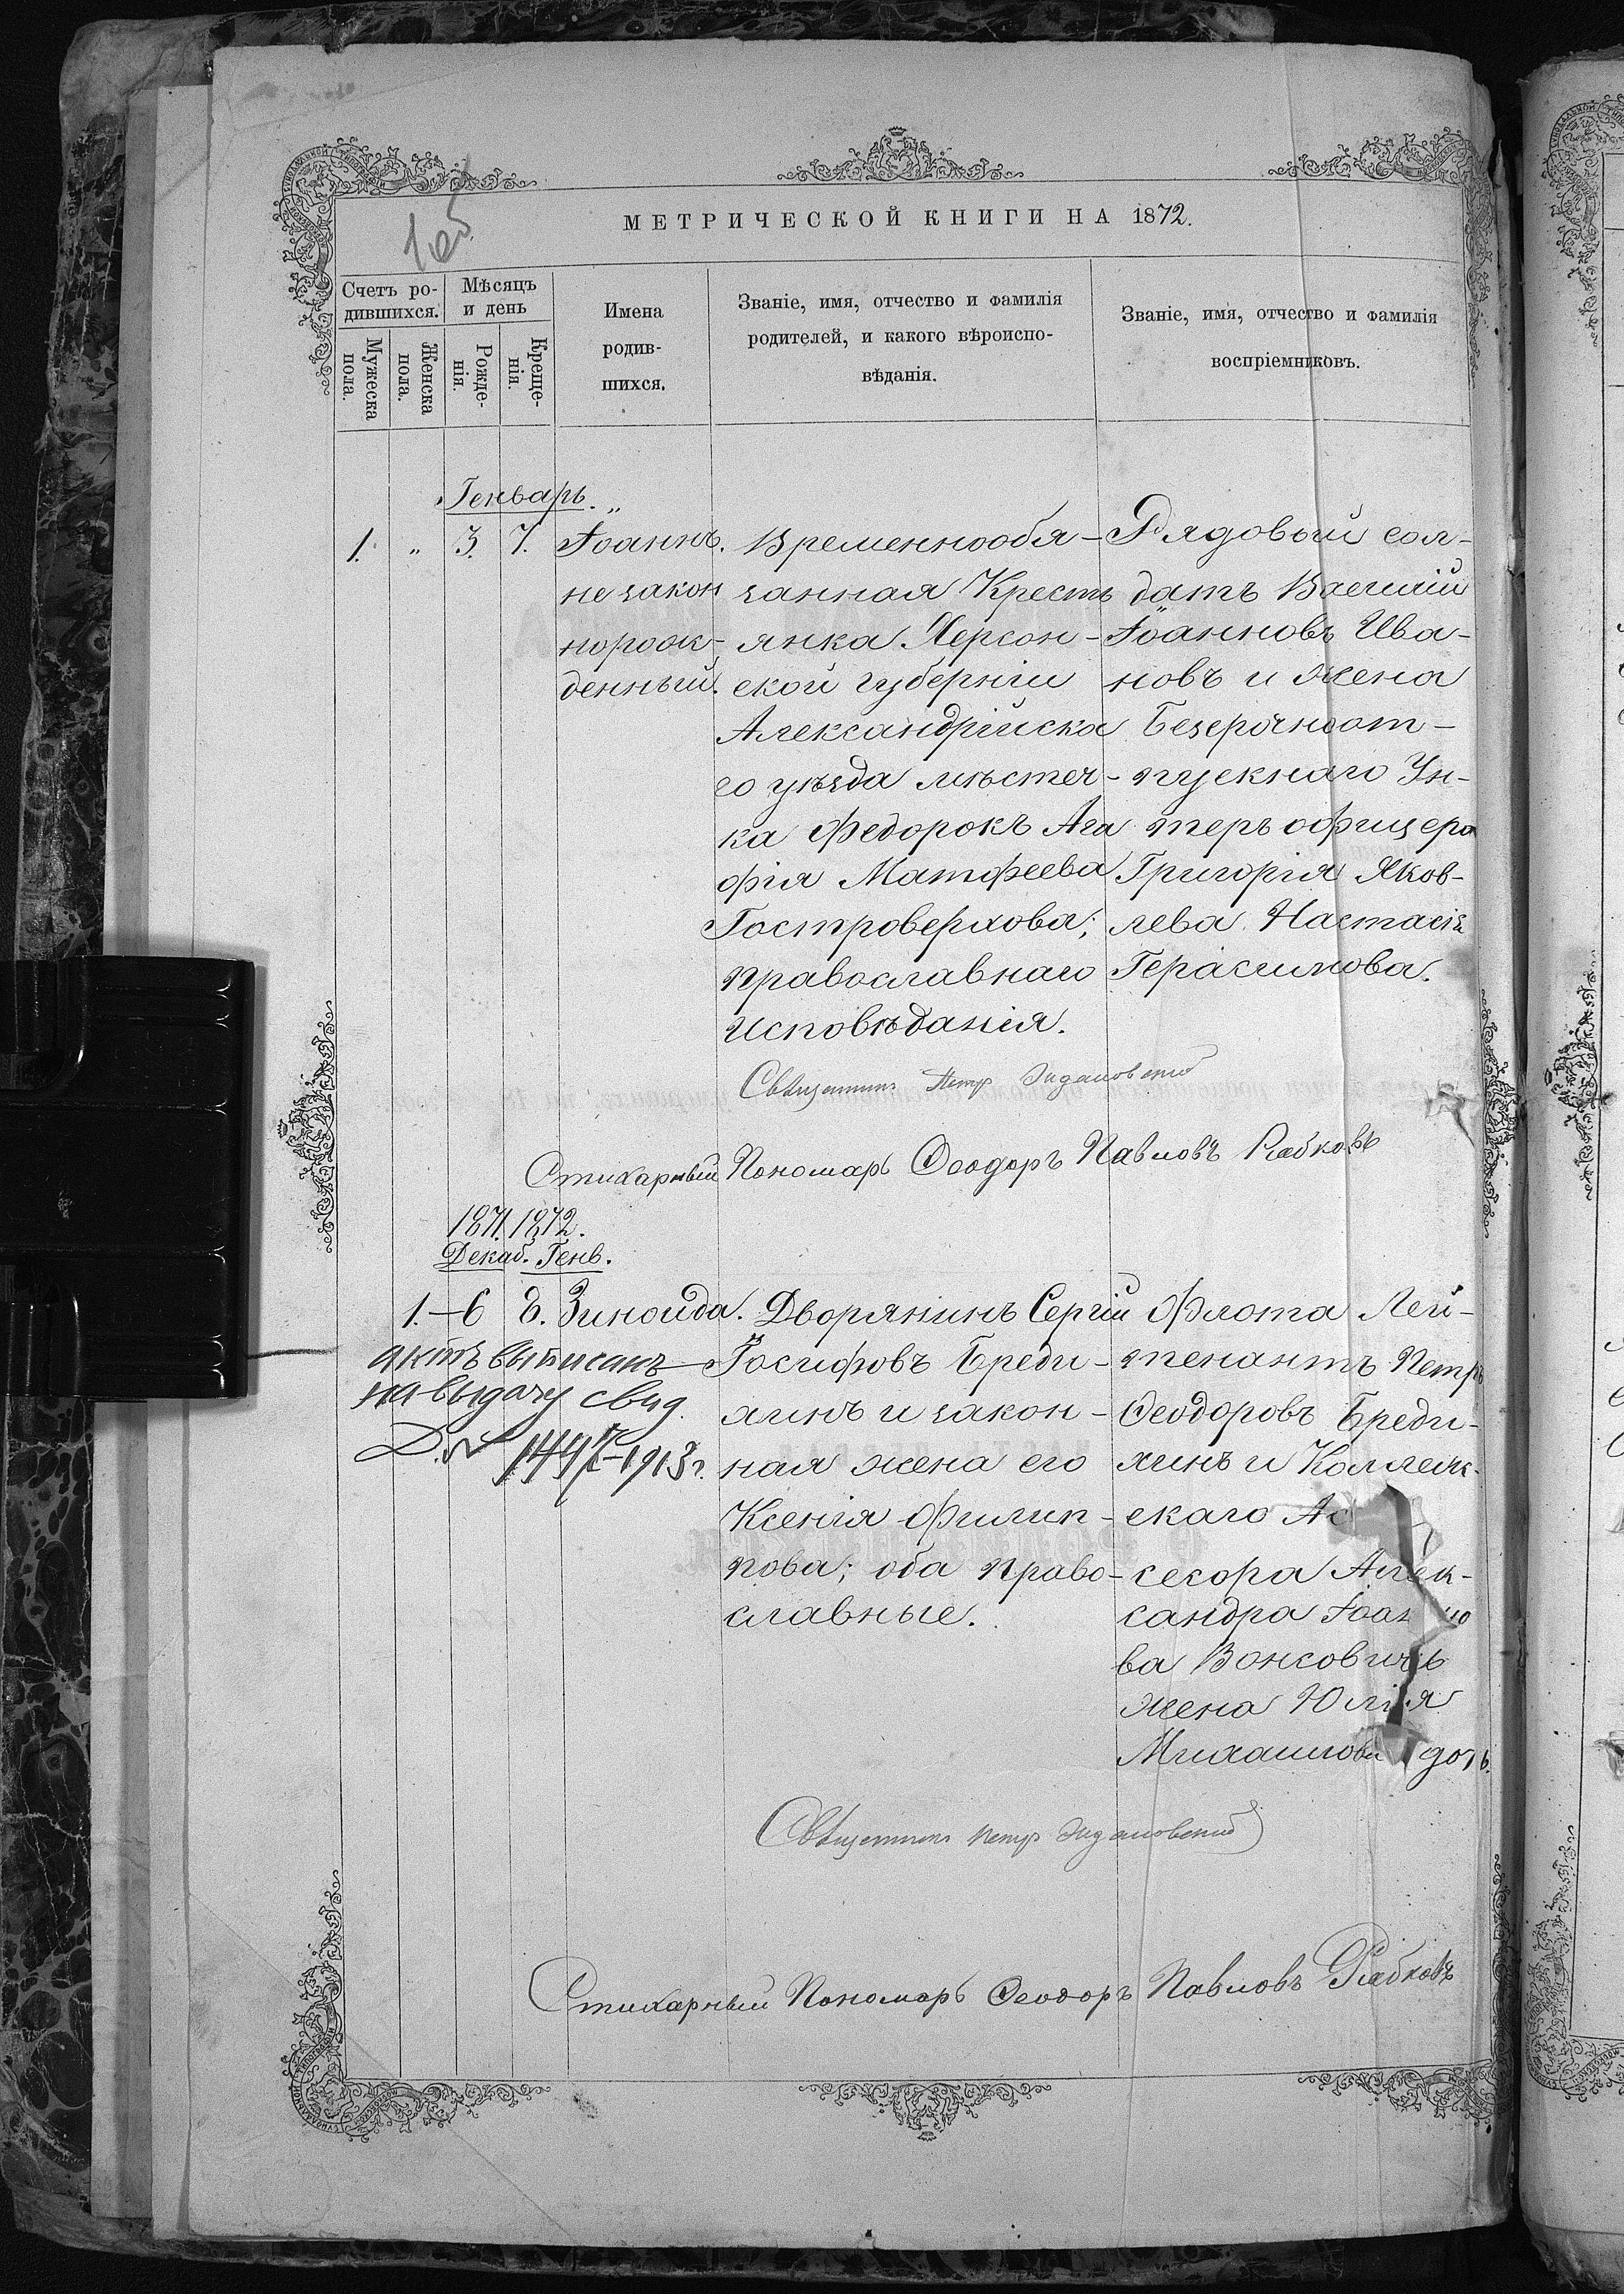 МЕТРИЧЕСКОЙ КНИГИ НА 1872.
Счетъ ро-
дившихся.
Мужеска
пола.
Женска
пола.
Мѣсяцъ
и день
Рожде-
нія.
Креще-
нія.
Имена
родив-
шихся.
Званіе, имя, отчество и фамилія
родителей, и какого вѣроиспо-
вѣданія.
Званіе, имя, отчество и фамилія
воспріемниковъ.
Генварь. „
1. „ 3. 7.
Іоаннъ.
незакон
норож-
денный.
Временнообя-
занная Кресть
янка Херсон-
ской губерніи
Александрійска
го уѣзда мѣстеч-
ка Федорокъ Ага
фія Матфеева
Гостроверхова;
православнаго
исповѣданія.
Рядовый сол-
датъ Василій
Іоанновъ Ива-
новъ и жена
Безсрочноот-
пускнаго Ун-
теръ офицера
Григорія Яков-
лева Настасія
Герасимова.
Священникъ Петръ
Стихарный Пономарь Ѳеодоръ Павловъ Рябковъ
1871. 1872.
Декаб. Генв.
1.—6 8. Зинаида.
актъ выписанъ
на выдачу свид.
Д. № 1447—1913 г.
Дворянинъ Сергій
Іосифовъ Бреди-
хинъ и закон-
ная жена его
Ксенія Филип-
пова; оба право-
славные.
Флота Лей-
тенантъ Петръ
Ѳеодоровъ Бреди-
хинъ и Коллежс-
скаго Ас
сесора Алек-
сандра Іоанно
ва Вонсовичъ
жена Юлія
Михаилова дочь.
Священникъ Петръ
Стихарный Пономарь Ѳеодоръ Павловъ Рябковъ